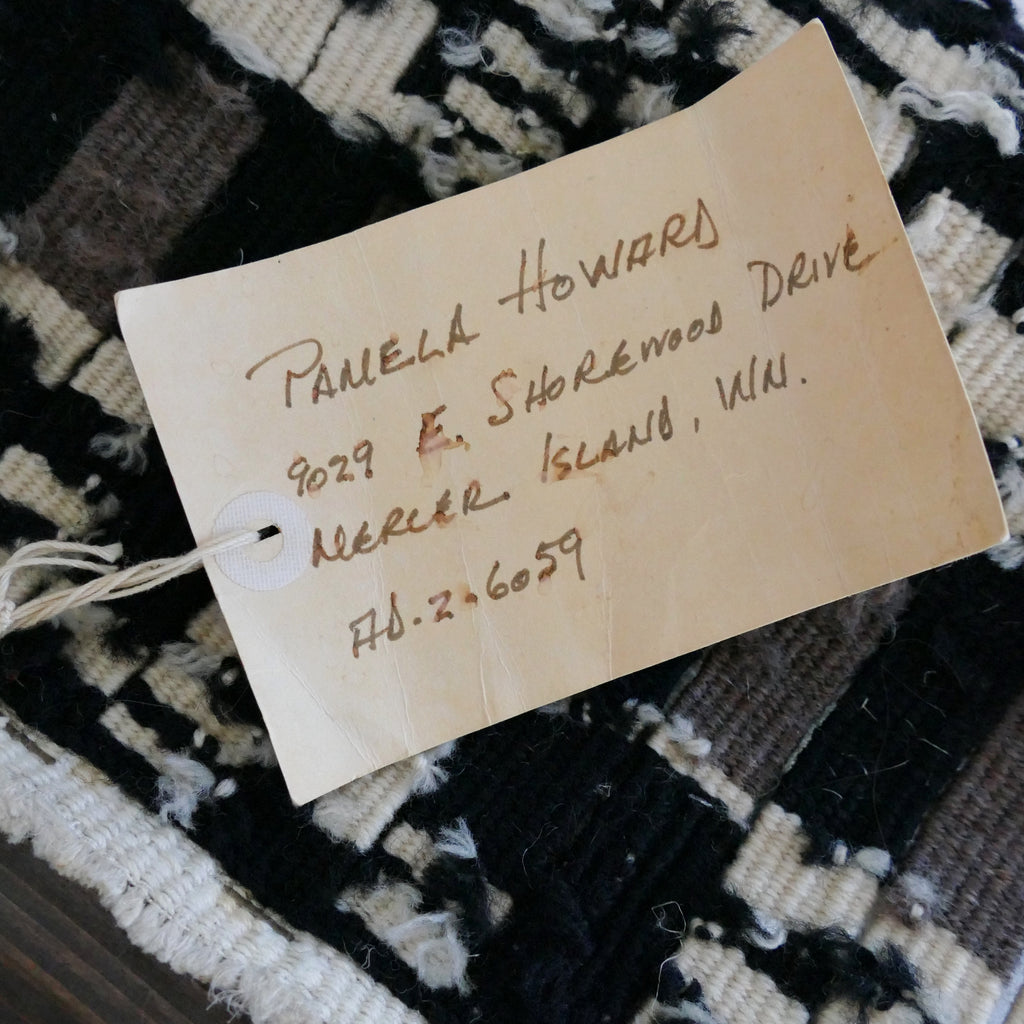 PAMELA HOWARD
9029 E. SHOREWOOD DRIVE
MERCER ISLAND, WN.
AD.2-6059